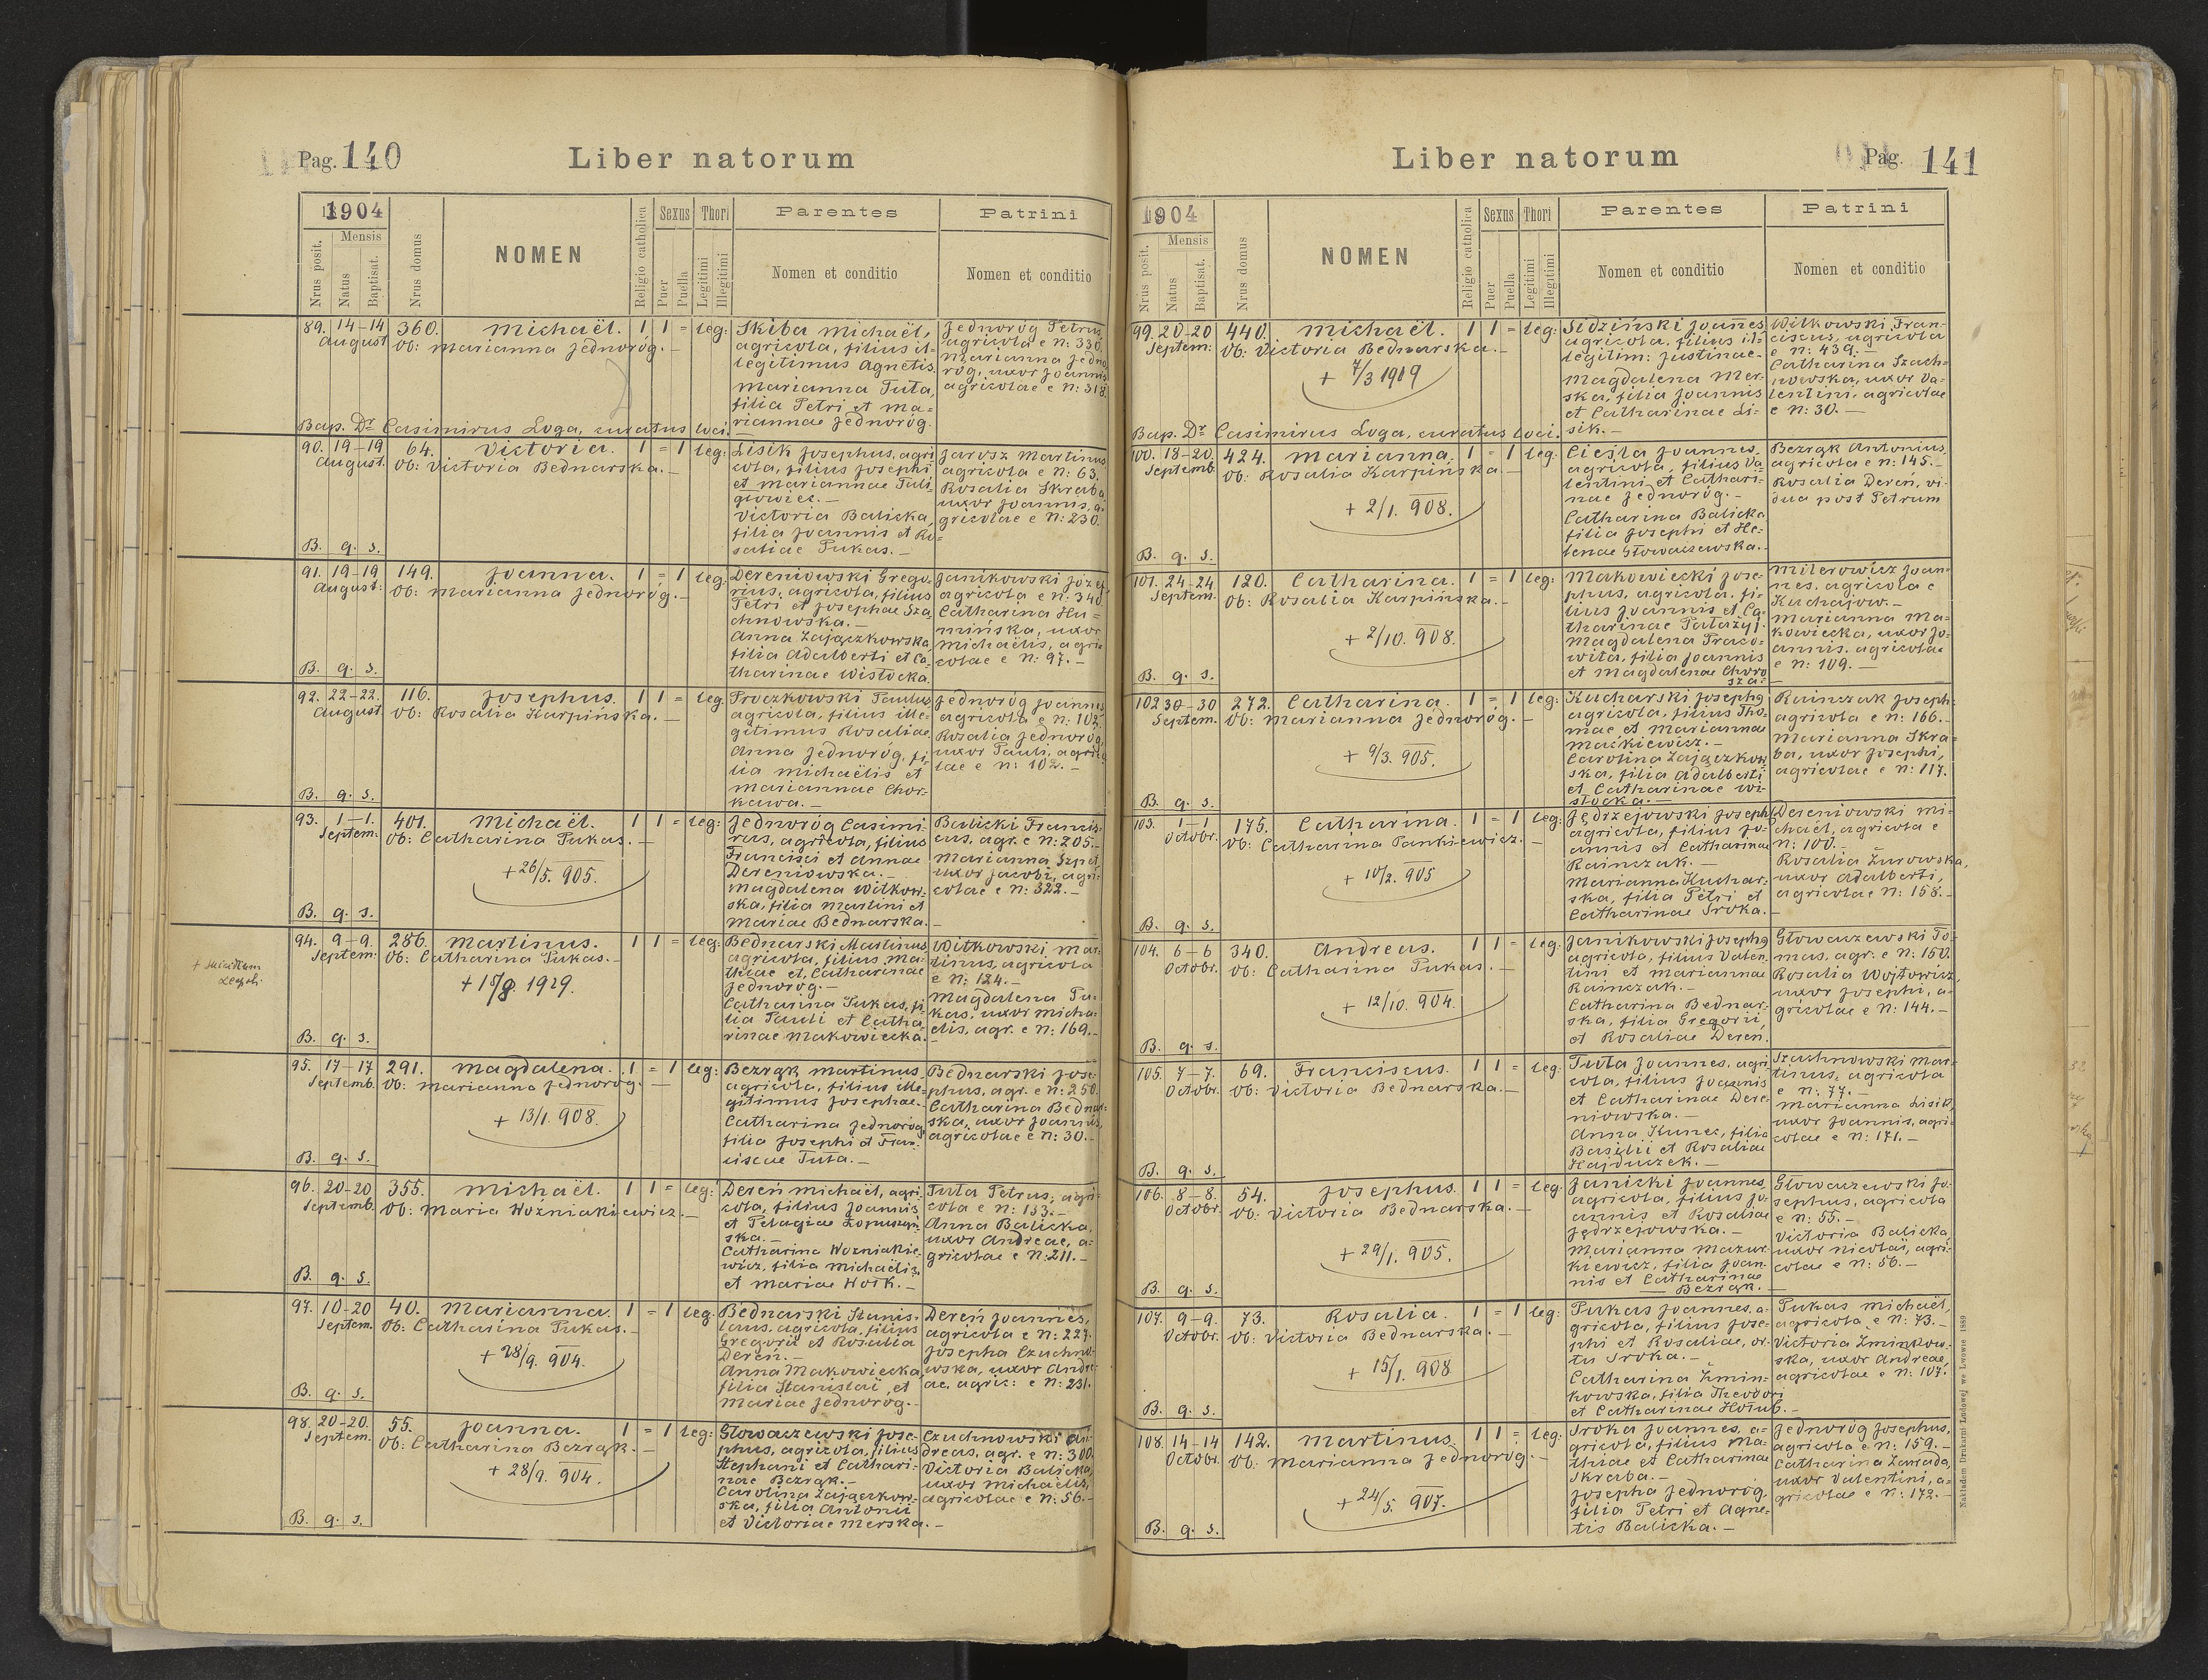 Pag. 140
Liber natorum
1904
Mensis
Nrus posit.
Natus
Baptisat.
Nrus domus
NOMEN
Religio catholica
Sexus
Puer
Puella
Thori
Legitimi
Illegitimi
Parentes
Nomen et conditio
Patrini
Nomen et conditio
89. 14-14 360. Michaël. 1 1 = leg:
August Ob: Marianna Jednoróg. —
Skiba Michaël,
agricola, filius il=
legitimus Agnetis.
Marianna Tuta,
filia Petri et Ma=
riannae Jednoróg.
Jednoróg Petrus
agricola e N: 330.
Marianna Jedno
róg, uxor Joannis
agricolae e N: 318.
Bap. Dr Casimirus Loga, curatus loci.
90. 19-19 64. Victoria. 1 = 1 leg:
August. Ob: Victoria Bednarska. —
Lisik Josephus, agri
cola, filius Josephi
et Mariannae Tuli=
głowiec. —
Victoria Balicka,
filia Joannis et Ro=
saliae Pukas. —
Jarosz Martinus
agricola e N: 63.
Rosalia Skraba,
uxor Joannis, a=
gricolae e N: 230.
B. q. s.
91. 19-19 149. Joanna. 1 = 1 leg:
August: Ob: Marianna Jednoróg. —
Dereniowski Grego=
rius, agricola, filius
Petri et Josephae Sza
chnowska. —
Anna Zajączkowska,
filia Adalberti et Ca=
tharinae Wisłocka.
Janikowski Józef
agricola e N: 340.
Catharina Hu=
mińska, uxor
Michaëlis, agri
colae e N: 97. —
B. q. s.
92. 22-22. 116. Josephus. 1 1 = leg.
August. Ob: Rosalia Karpińska. —
Proczkowski Paulus
agricola, filius ille=
gitimus Rosaliae.
Anna Jednoróg, fi=
lia Michaëlis et
Mariannae Chor=
kawa. —
Jednoróg Joannes
agricola e N: 102.
Rosalia Jednoróg,
uxor Pauli, agrico
lae e N: 102. —
B. q. s.
93. 1-1. 401. Michaël. 1 1 = leg:
Septem: Ob: Catharina Pukas. —
+ 26/5. 905.
Jednoróg Casimi=
rus, agricola, filius
Francisci et Annae
Dereniowska. —
Magdalena Witkow=
ska, filia Martini et
Mariae Bednarska.
Balicki Francis=
cus, agr. e N: 205. —
Marianna Szpet,
uxor Jacobi, agri=
colae e N: 322. —
B. q. s.
94. 9-9. 286. Martinus. 1 1 = leg:
Septem: Ob: Catharina Pukas. —
+ 15/8. 1929.
Bednarski Martinus
agricola, filius Ma=
thiae et Catharinae
Jednoróg. —
Catharina Pukas, fi=
lia Pauli et Catha
rinae Makowiecka.
Witkowski Mar=
tinus, agricola
e N: 124. —
Magdalena Pu=
kas, uxor Micha=
elis, agr. e N: 169. —
B. q. s.
95. 17-17 291. Magdalena. 1 = 1 leg:
Septemb. Ob: Marianna Jednoróg. —
+ 13/1. 908.
Bezrąk Martinus
agricola, filius ille=
gitimus Josephae.
Catharina Jednoróg,
filia Josephi et Fran=
ciscae Tuta. —
Bednarski Jose=
phus, agr. e N: 250.
Catharina Bednar=
ska, uxor Joannis,
agricolae e N: 30. —
B. q. s.
96. 20-20 355. Michaël. 1 1 = leg:
Septemb. Ob: Maria Woźniakiewicz. —
Dereń Michaël, agri
cola, filius Joannis
et Pelagiae Łopuszań
ska. —
Catharina Woźniakie=
wicz, filia Michaëlis
et Mariae Wołk. —
Tuta Petrus, agri=
cola e N: 153. —
Anna Balicka,
uxor Andreae, a=
gricolae e N: 211. —
B. q. s.
97. 10-20 40. Marianna. 1 = 1 leg.
Septem. Ob: Catharina Pukas. —
+ 28/9. 904.
Bednarski Stanis=
laus, agricola, filius
Gregorii et Rosalia
Dereń. —
Anna Makowiecka,
filia Stanislai et
Mariae Jednoróg. —
Dereń Joannes,
agricola e N: 227.
Josepha Czuchno=
wska, uxor Andre=
ae, agric: e N: 231.
B. q. s.
98. 20-20. 55. Joanna. 1 = 1 leg:
Septem. Ob: Catharina Bezrąk. —
+ 28/9. 904.
Głowaczewski Jose=
phus, agricola, filius
Stephani et Cathari=
nae Bezrąk. —
Carolina Zajączkow=
ska, filia Antonii
et Victoriae Merska. —
Czuchnowski An
dreas, agr. e N: 300.
Victoria Balicka,
uxor Michaëlis,
agricolae e N: 56. —
B. q. s.
Pag. 141
Liber natorum
1904
Mensis
Nrus posit.
Natus
Baptisat.
Nrus domus
NOMEN
Religio catholica
Sexus
Puer
Puella
Thori
Legitimi
Illegitimi
Parentes
Nomen et conditio
Patrini
Nomen et conditio
99. 20-20 440. Michaël. 1 1 = leg:
Septem: Ob: Victoria Bednarska. —
+ 7/3 1919
Sidziński Joannes
agricola, filius il=
legitim: Justinae. —
Magdalena Mer=
ska, filia Joannis
et Catharinae Li=
sik. —
Witkowski Fran=
ciscus, agricola
e N: 439. —
Catharina Szach=
nowska, uxor Va=
lentini, agricolae
e N: 30. —
Bap. Dr Casimirus Loga, curatus loci.
100. 18-20. 424. Marianna. 1 = 1 leg:
Septemb. Ob: Rosalia Karpińska. —
+ 2/1. 908.
Cieśla Joannes,
agricola, filius Va=
lentini et Cathari=
nae Jednoróg. —
Catharina Balicka
filia Josephi et He=
lenae Głowaczewska. —
Bezrąk Antonius,
agricola e N: 145. —
Rosalia Dereń, vi=
dua post Petrum
B. q. s.
101. 24-24 120. Catharina. 1 = 1 leg:
Septem. Ob: Rosalia Karpińska. —
+ 2/10. 908.
Makowiecki Jose=
phus, agricola, fi=
lius Joannis et Ca=
tharinae
Magdalena Traco=
wita, filia Joannis
et Magdalenae Choro
sza. —
Milerowicz Joan=
nes, agricola e
Kuchajow. —
Marianna Ma=
kowiecka, uxor Jo=
annis, agricolae
e N: 109. —
B. q. s.
102. 30-30 272. Catharina. 1 = 1 leg:
Septem. Ob: Marianna Jednoróg. —
+ 9/3. 905.
Kucharski Josephus
agricola, filius Tho=
mae et Marianna
Maćkiewicz. —
Carolina Zajączkow
ska, filia Adalberti
et Catharinae Wi=
słocka. —
Rainczak Joseph:
agricola e N: 166. —
Marianna Skra=
ba, uxor Josephi,
agricolae e N: 117.
B. q. s.
103. 1-1 175. Catharina. 1 = 1 leg:
Octobr. Ob: Catharina Pankiewicz. —
+ 10/2. 905
Jędrzejowski Joseph
agricola, filius Jo=
annis et Catharinae
Rainczak. —
Marianna Kuchar=
ska, filia Petri et
Catharinae Sroka. —
Dereniowski Mi=
chaël, agricola e
N: 100. —
Rosalia Żurowska,
uxor Adalberti,
agricolae N: 158. —
B. q. s.
104. 6-6 340. Andreas. 1 1 = leg:
Octobr. Ob: Catharina Pukas. —
+ 12/10. 904.
Janikowski Josephus
agricola, filius Valen
tini et Marianna
Rainczak. —
Catharina Bednar=
ska, filia Gregorii,
et Rosaliae Dereń.
Głowaczewski To=
mas, agr. e N: 150.
Rosalia Wojtowicz,
uxor Josephi, a=
gricolae e N: 144. —
B. q. s.
105. 7-7. 69. Franciscus. 1 1 = leg:
Octobr. Ob: Victoria Bednarska. —
Tuta Joannes, agri=
cola, filius Joannis
et Catharinae Dere=
niowska. —
Anna Kunec, filia
Basilii et Rosaliae
Hajduczek. —
Szachnowski Mar=
tinus, agricola
e N: 77. —
Marianna Lisik,
uxor Joannis, agri=
colae e N: 171. —
B. q. s.
106. 8-8. 54. Josephus. 1 1 = leg:
Octobr. Ob: Victoria Bednarska. —
+ 29/1. 905.
Janicki Joannes,
agricola, filius Jo=
annis et Rosaliae
Jędrzejowska. —
Marianna Mazur=
kiewicz, filia Joan=
nis et Catharinae
Bezrąk. —
Głowaczewski Jo=
sephus, agricola
e N: 55. —
Victoria Balicka,
uxor Nicolai, agri=
colae e N: 56. —
B. q. s.
107. 9-9. 73. Rosalia. 1 = 1 leg:
Octobr. Ob: Victoria Bednarska. —
+ 15/1. 908
Pukas Joannes, a=
gricola, filius Jose=
phi et Rosaliae, or=
tu Sroka. —
Catharina Żmin=
kowska, filia Theodori
et Catharinae Hołub. —
Pukas Michaël,
agricola e N: 73. —
Victoria Żminkow=
ska, uxor Andreae,
agricolae e N: 107.
B. q. s.
108. 14-14 142. Martinus. 1 1 = leg:
Octobr. Ob: Marianna Jednoróg. —
+ 24/5. 907.
Sroka Joannes, a=
gricola, filius Ma=
thiae et Catharinae
Skraba. —
Josepha Jednoróg,
filia Petri et Agne=
tis Balicka. —
Jednoróg Josephus,
agricola e N: 159. —
Catharina Zawada,
uxor Valentini, a=
gricolae e N: 172. —
B. q. s.
Nakładem Drukarni Ludowej we Lwowie 1889